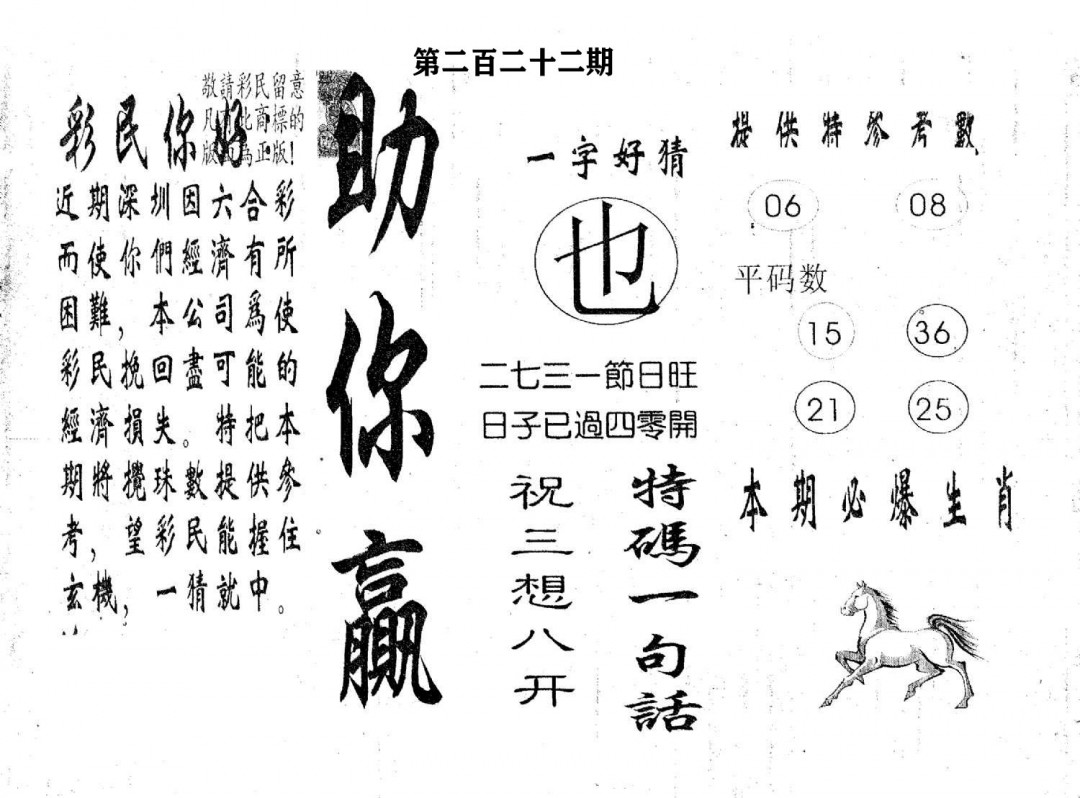 第二百二十二期
敬請彩民留意
凡 此商標的
版 爲正版!
彩民你好
近期深圳因六合彩
而使你們經濟有所
困難，本公司爲使
彩民挽回盡可能的
經濟損失。特把本
期將攪珠數提供參
考，望彩民能握住
玄機，一猜就中。
助你贏
一字好猜
也
二七三一節日旺
日子已過四零開
特碼一句話
祝三想八开
提供特參考數
06 08
平码数
15 36
21 25
本期必爆生肖